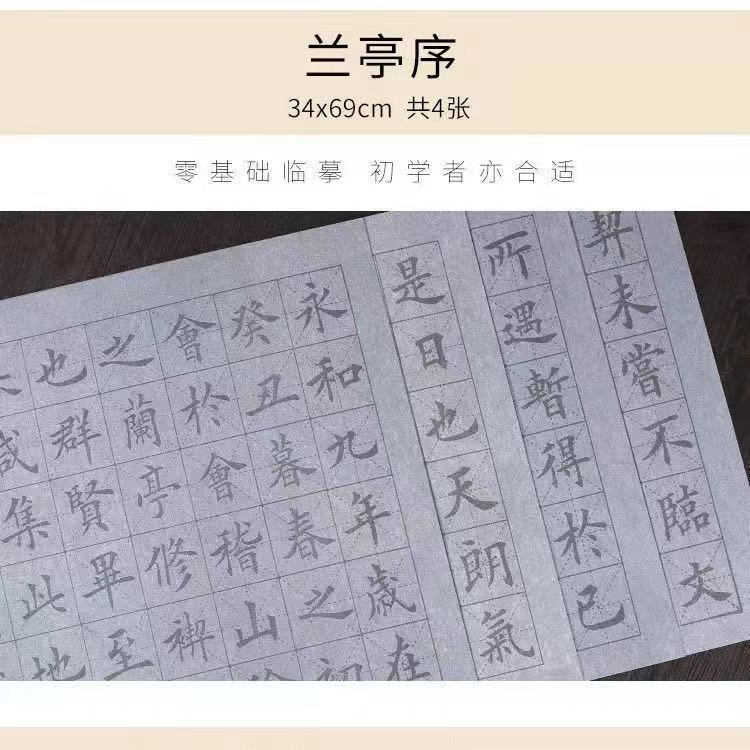 兰亭序
34x69cm 共4张
零基础临摹 初学者亦合适
永和九年歲在
癸丑暮春之初
會於會稽山
之蘭亭修禊
也群賢畢至
咸集此地
是日也天朗氣
所遇暫得於己
契未嘗不臨文